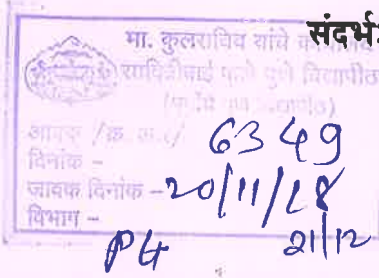 संदर्भ:
मा. कुलसचिव यांचे
सावित्रीबाई फुले पुणे विद्यापीठ
6349
दिनांक -
जावक दिनांक - 20/11/18
विभाग -
PG 21/12